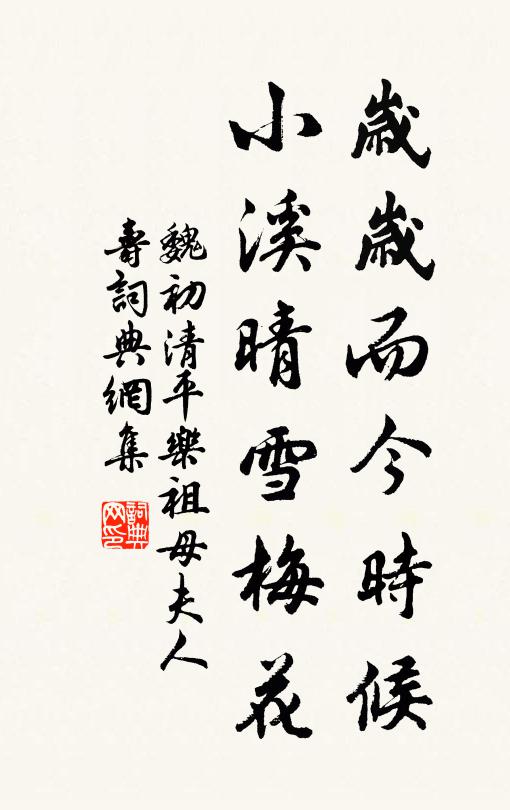 歲歲而今時候
小溪晴雪梅花
魏初清平樂祖母夫人
壽詞典網集
詞典網印